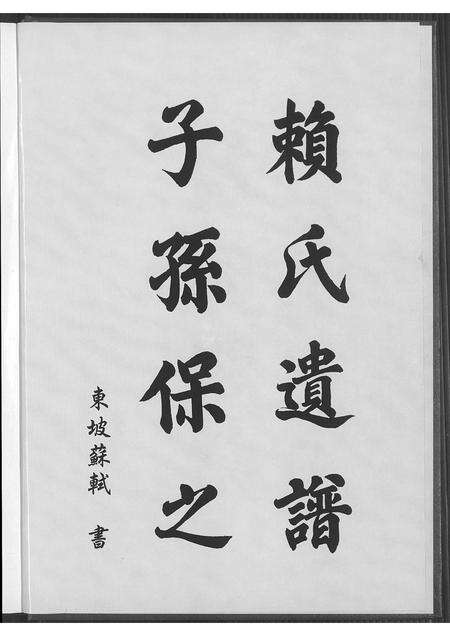 賴氏遺譜
子孫保之
東坡蘇軾 書